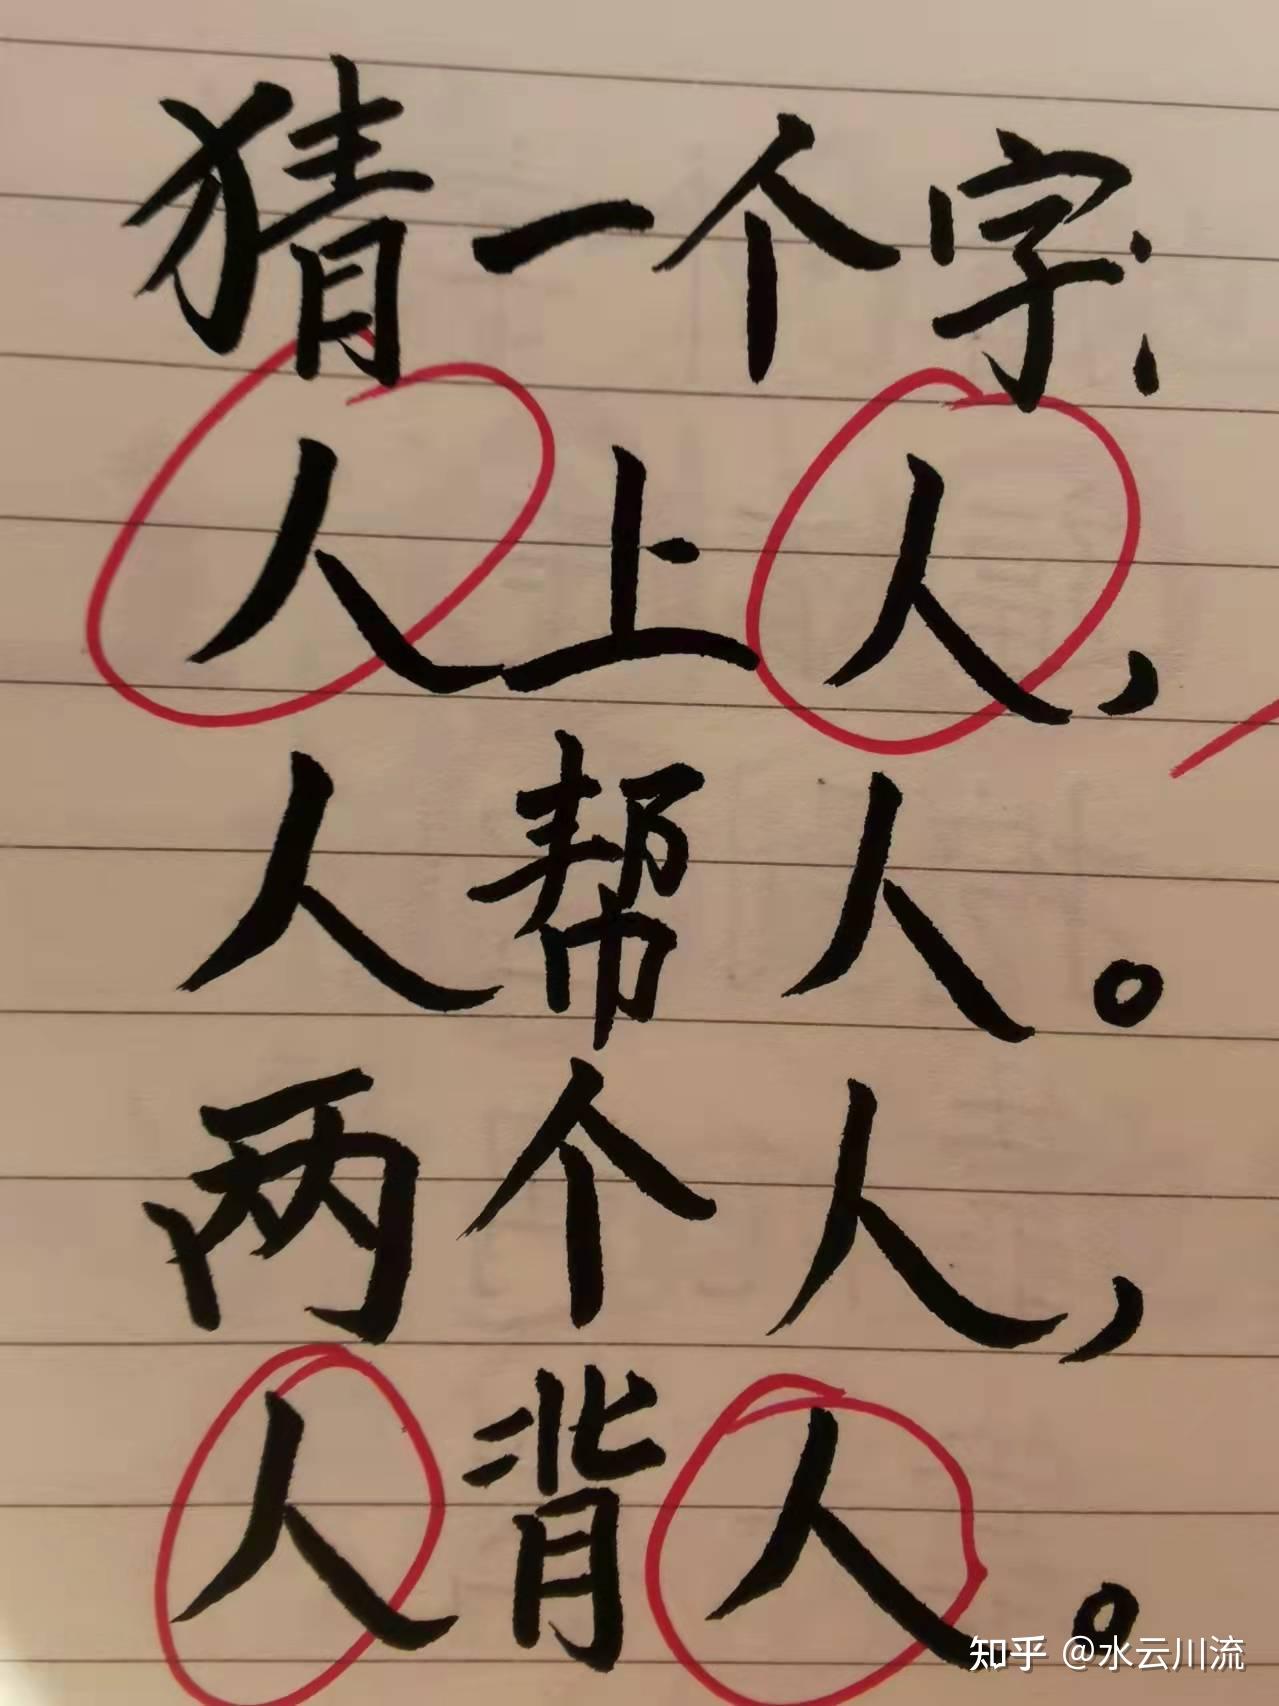 猜一个字:
人上人,
人帮人。
两个人,
人背人。
知乎 @水云川流